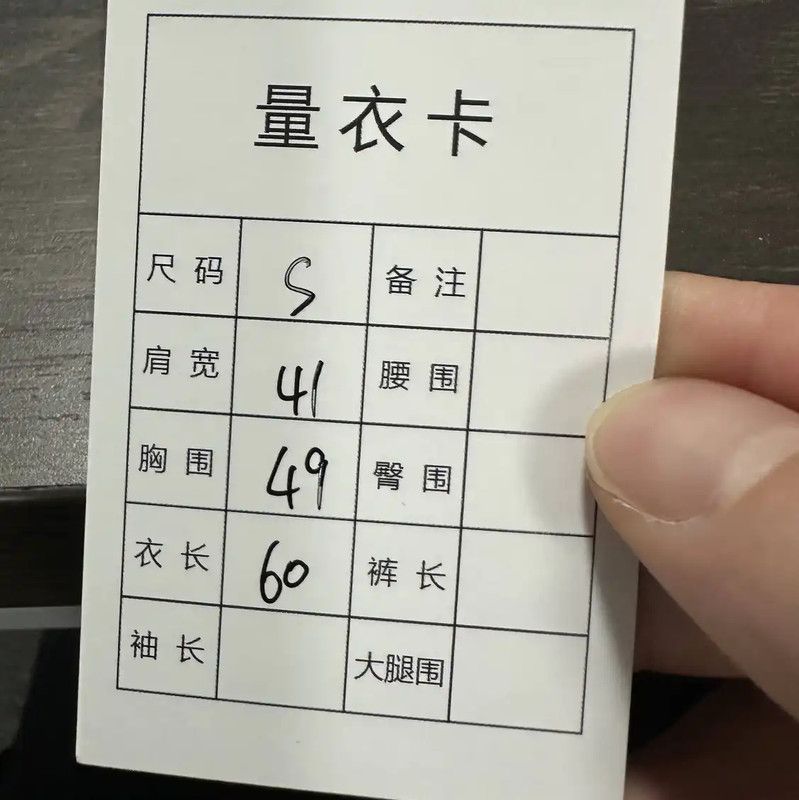 量衣卡
尺码 S 备注
肩宽 41 腰围
胸围 49 臀围
衣长 60 裤长
袖长 大腿围